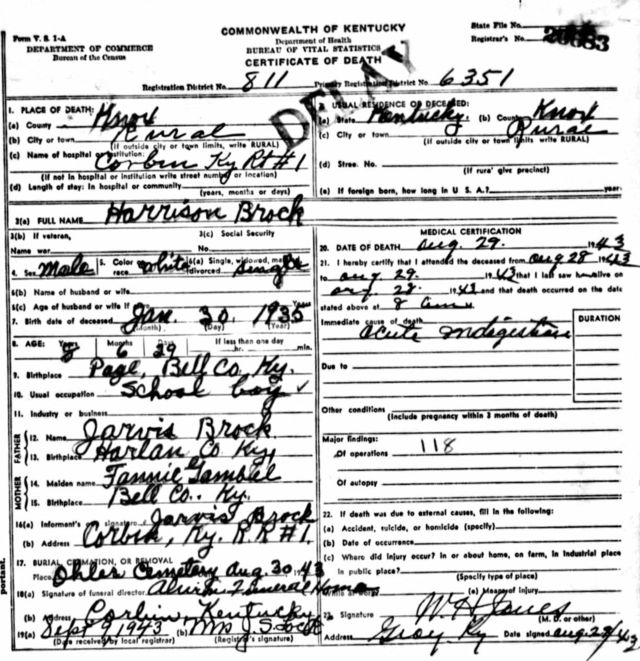 Form V. S. 1-A
DEPARTMENT OF COMMERCE
Bureau of the Census
COMMONWEALTH OF KENTUCKY
Department of Health
BUREAU OF VITAL STATISTICS
CERTIFICATE OF DEATH
State File No.
Registrar's No.
Registration District No. 811
Primary Registration District No. 6351
DELAY
1. PLACE OF DEATH:
(a) County Knox
(b) City or town Rural
(If outside city or town limits, write RURAL)
(c) Name of hospital or institution:
Corbin Ky Rt #1
(If not in hospital or institution write street number or location)
(d) Length of stay: In hospital or community
(years, months or days)
2. USUAL RESIDENCE OF DECEASED:
(a) State Kentucky. (b) County Knox
(c) City or town Rural
(If outside city or town limits write RURAL)
(d) Stree. No.
(If rura' give precinct)
(e) If foreign born, how long in U. S. A.? years
3(a) FULL NAME Harrison Brock
3(b) If veteran,
Name war
3(c) Social Security
No.
4. Sex Male 5. Color race white 6(a) Single, widowed, married, divorced Single
6(b) Name of husband or wife
6(c) Age of husband or wife if Years
7. Birth date of deceased Jan. 30, 1935
(Month) (Day) (Year)
8. AGE: Years 8 Months 6 Days 29 If less then one day
hr. min.
9. Birthplace Page, Bell Co, Ky.
10. Usual occupation School boy
11. Industry or business
FATHER
12. Name Jarvis Brock
13. Birthplace Harlan Co Ky,
MOTHER
14. Maiden name Fannie Gambel
15. Birthplace Bell Co. Ky.
16(a) Informent's signature Jarvis Brock
(b) Address Corbin, Ky. R R #1.
17. BURIAL, CREMATION, OR REMOVAL
Place Ohler Cemetery Aug. 30 43
18(a) Signature of funeral director Funeral Home
(b) Address Corbin, Kentucky
19(a) Sept 2 1943 (b) Mrs
(Date received by local registrar) (Registrar's signature)
MEDICAL CERTIFICATION
20. DATE OF DEATH Aug. 29. 1943
21. I hereby certify that I attended the deceased from Aug 28 1943
to Aug. 29. 1943 that I last saw him alive on
Aug. 28. 1943 and that death occurred on the date
stated above at 8 am
Immediate cause of death
acute indigestion
DURATION
Due to
Other conditions
(Include pregnancy within 3 months of death)
Major findings:
Of operations 118
Of autopsy
22. If death was due to external causes, fill in the following:
(a) Accident, suicide, or homicide (specify)
(b) Date of occurrence
(c) Where did injury occur? in or about home, on farm, in industrial place
in public place?
(Specify type of place)
(e) Means of injury
23. Signature W. H. Jones
(M. D. or other)
Address Gray Ky Date signed Aug. 29/43
portant.